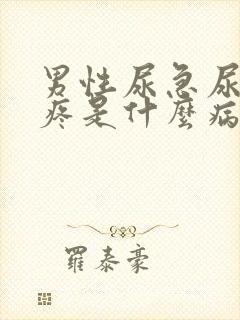 男性尿急尿
疼是什麼病
羅泰豪